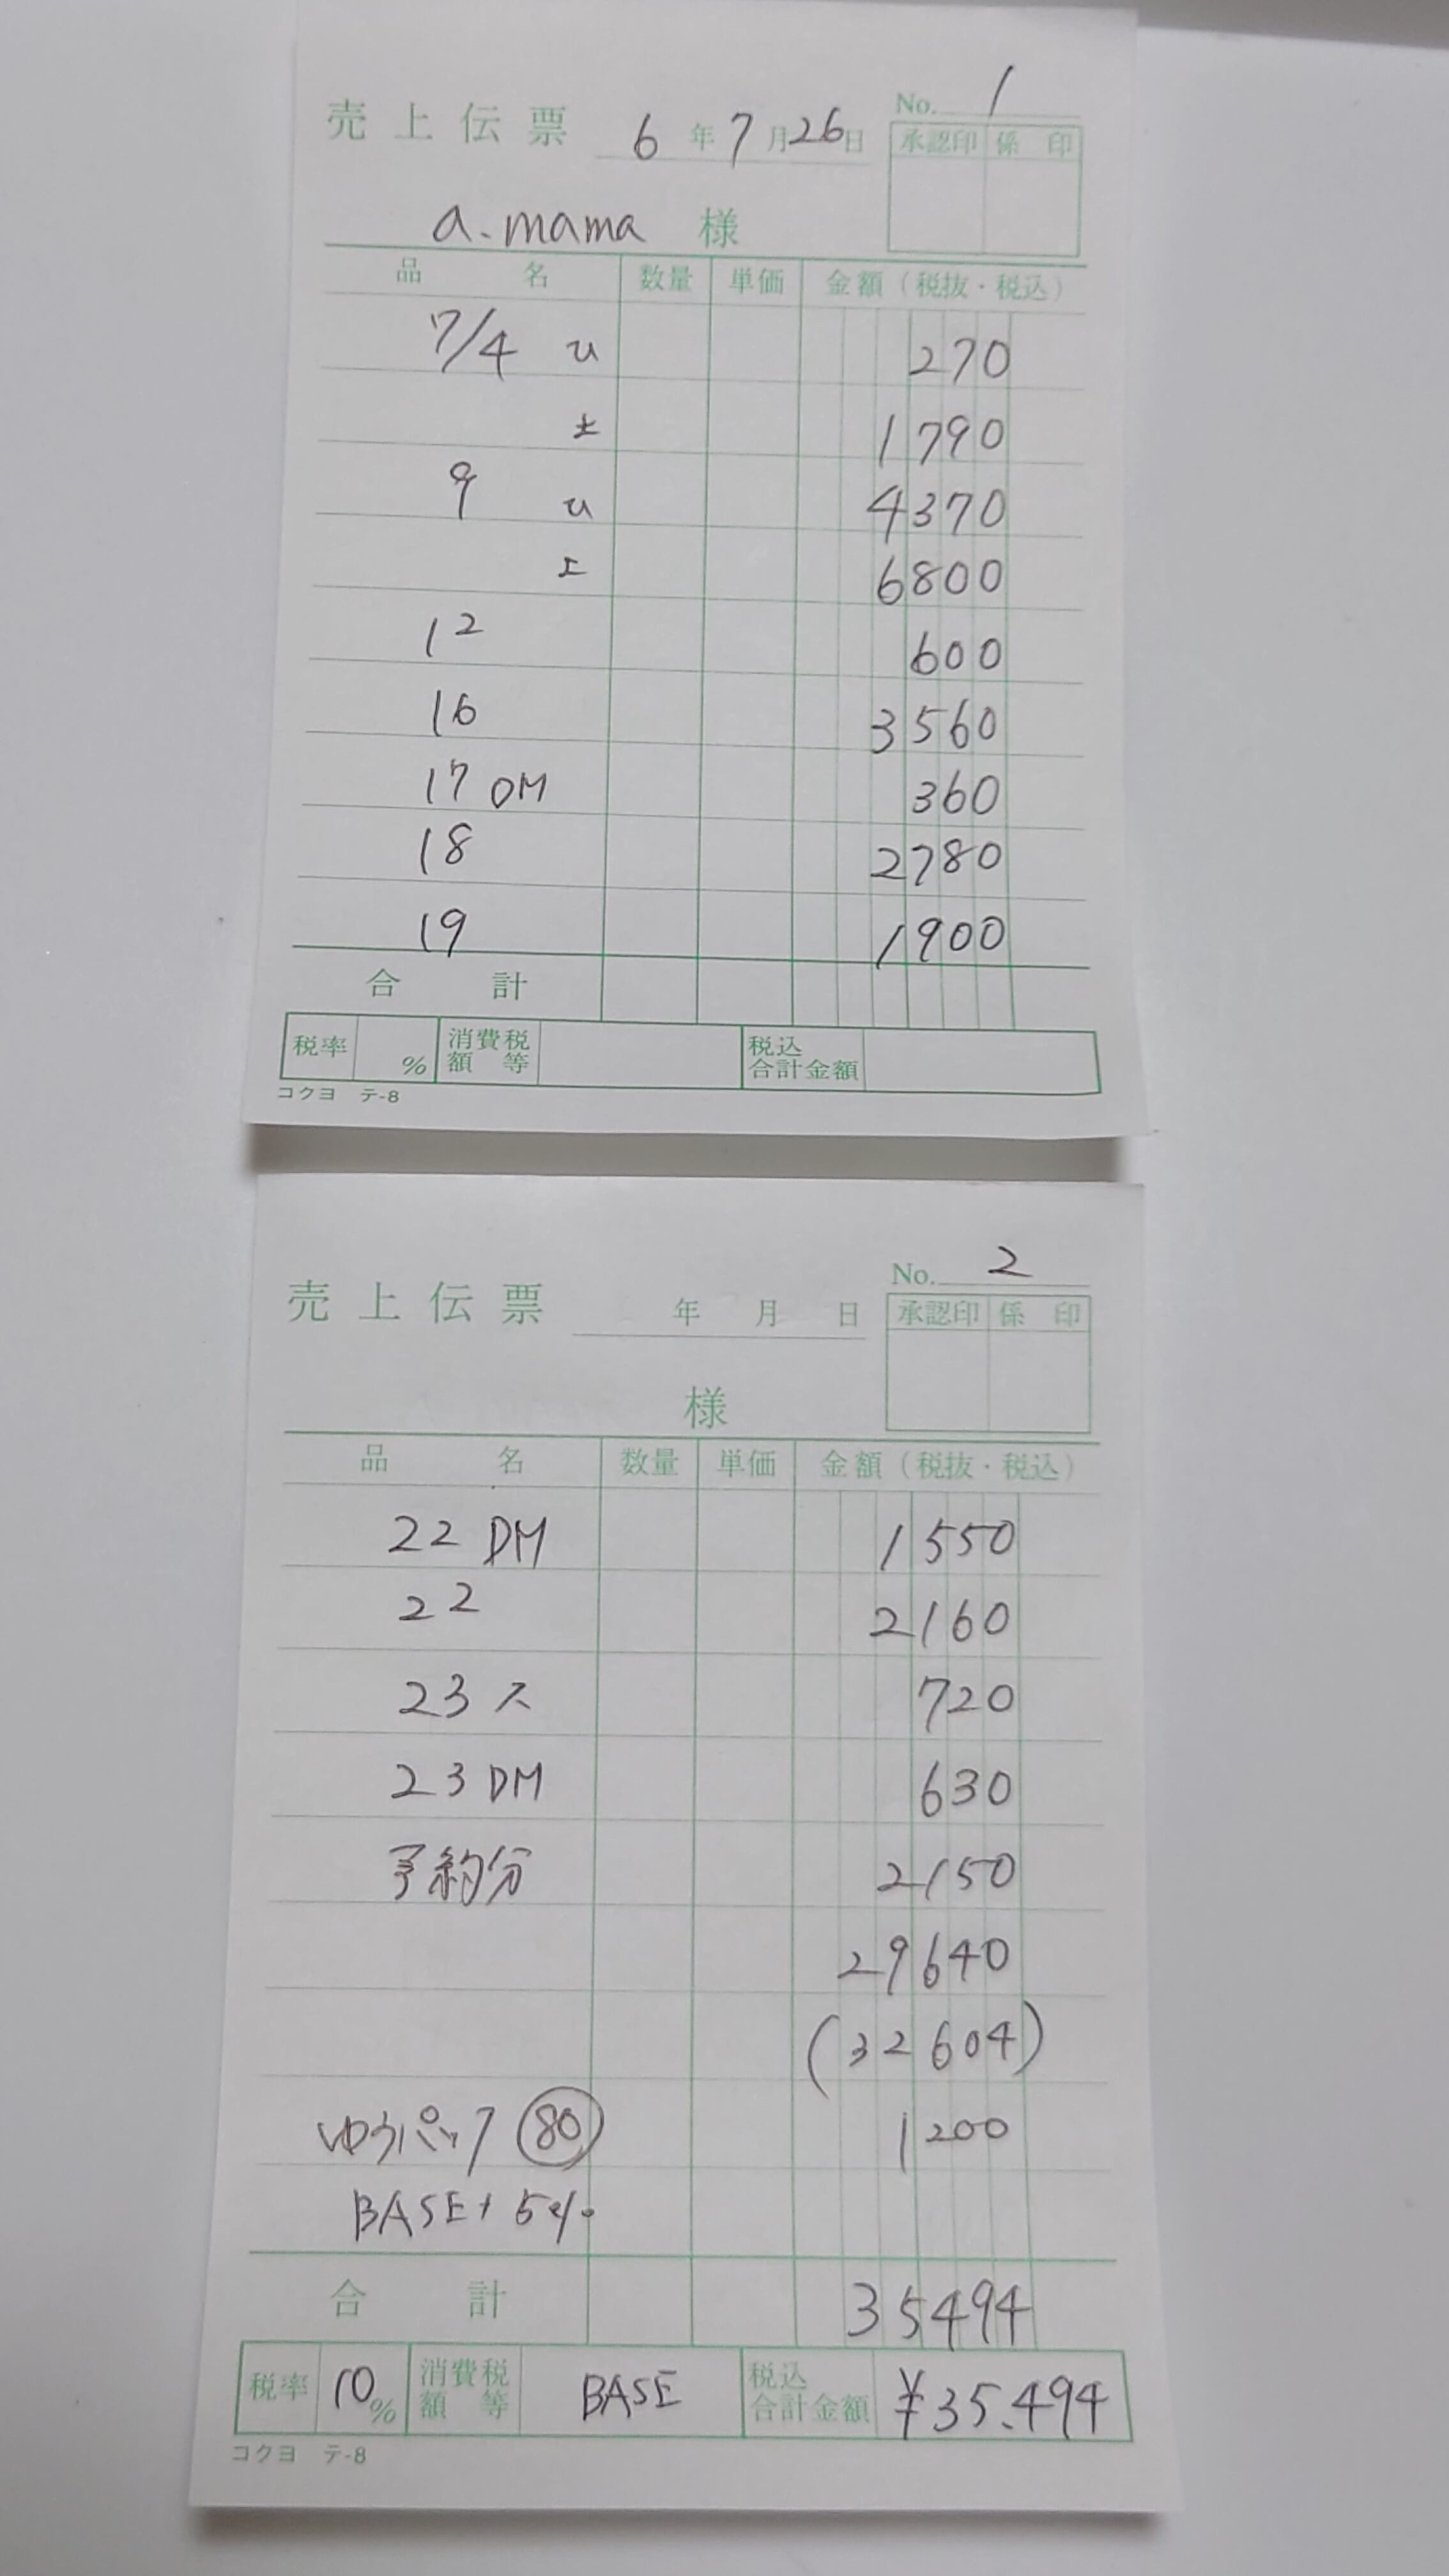 No. 1
売上伝票 6年7月26日
承認印 係印
a.mama 様
品名 数量 単価 金額（税抜・税込）
7/4 u 270
± 1790
9 u 4370
エ 6800
12 600
16 3560
17 DM 360
18 2780
19 1900
合計
税率 % 消費税額等 税込合計金額
コクヨ テ-8
No. 2
売上伝票 年 月 日
承認印 係印
様
品名 数量 単価 金額（税抜・税込）
22 DM 1550
22 2160
23 ス 720
23 DM 630
予約分 2150
29640
(32604)
ゆうパック 80 1200
BASE + 5%
合計 35494
税率 10% 消費税額等 BASE 税込合計金額 ¥35.494
コクヨ テ-8